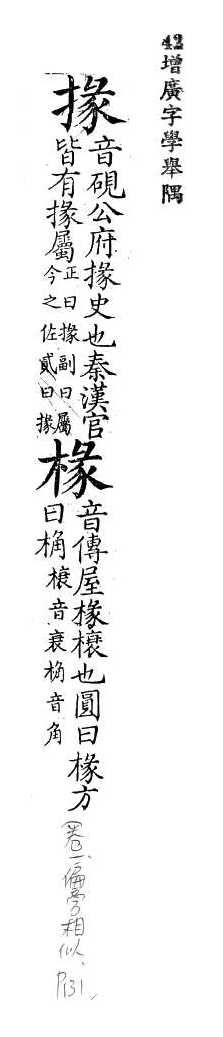 42增廣字學舉隅
掾
音硯公府掾史也秦漢官
皆有掾屬
正曰掾副曰屬
今之佐貳曰掾
椽
音傳屋椽榱也圓曰椽方
曰桷榱音衰桷音角
(卷一、偏旁相似、P131、